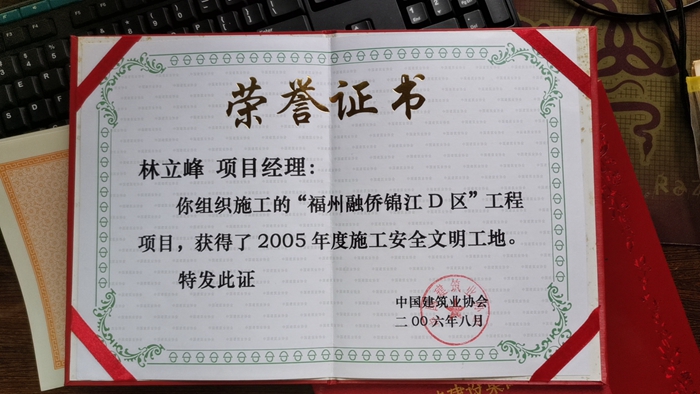 荣誉证书
林立峰 项目经理：
你组织施工的“福州融侨锦江 D 区”工程
项目，获得了 2005 年度施工安全文明工地。
特发此证
中国建筑业协会
二 00 六年八月